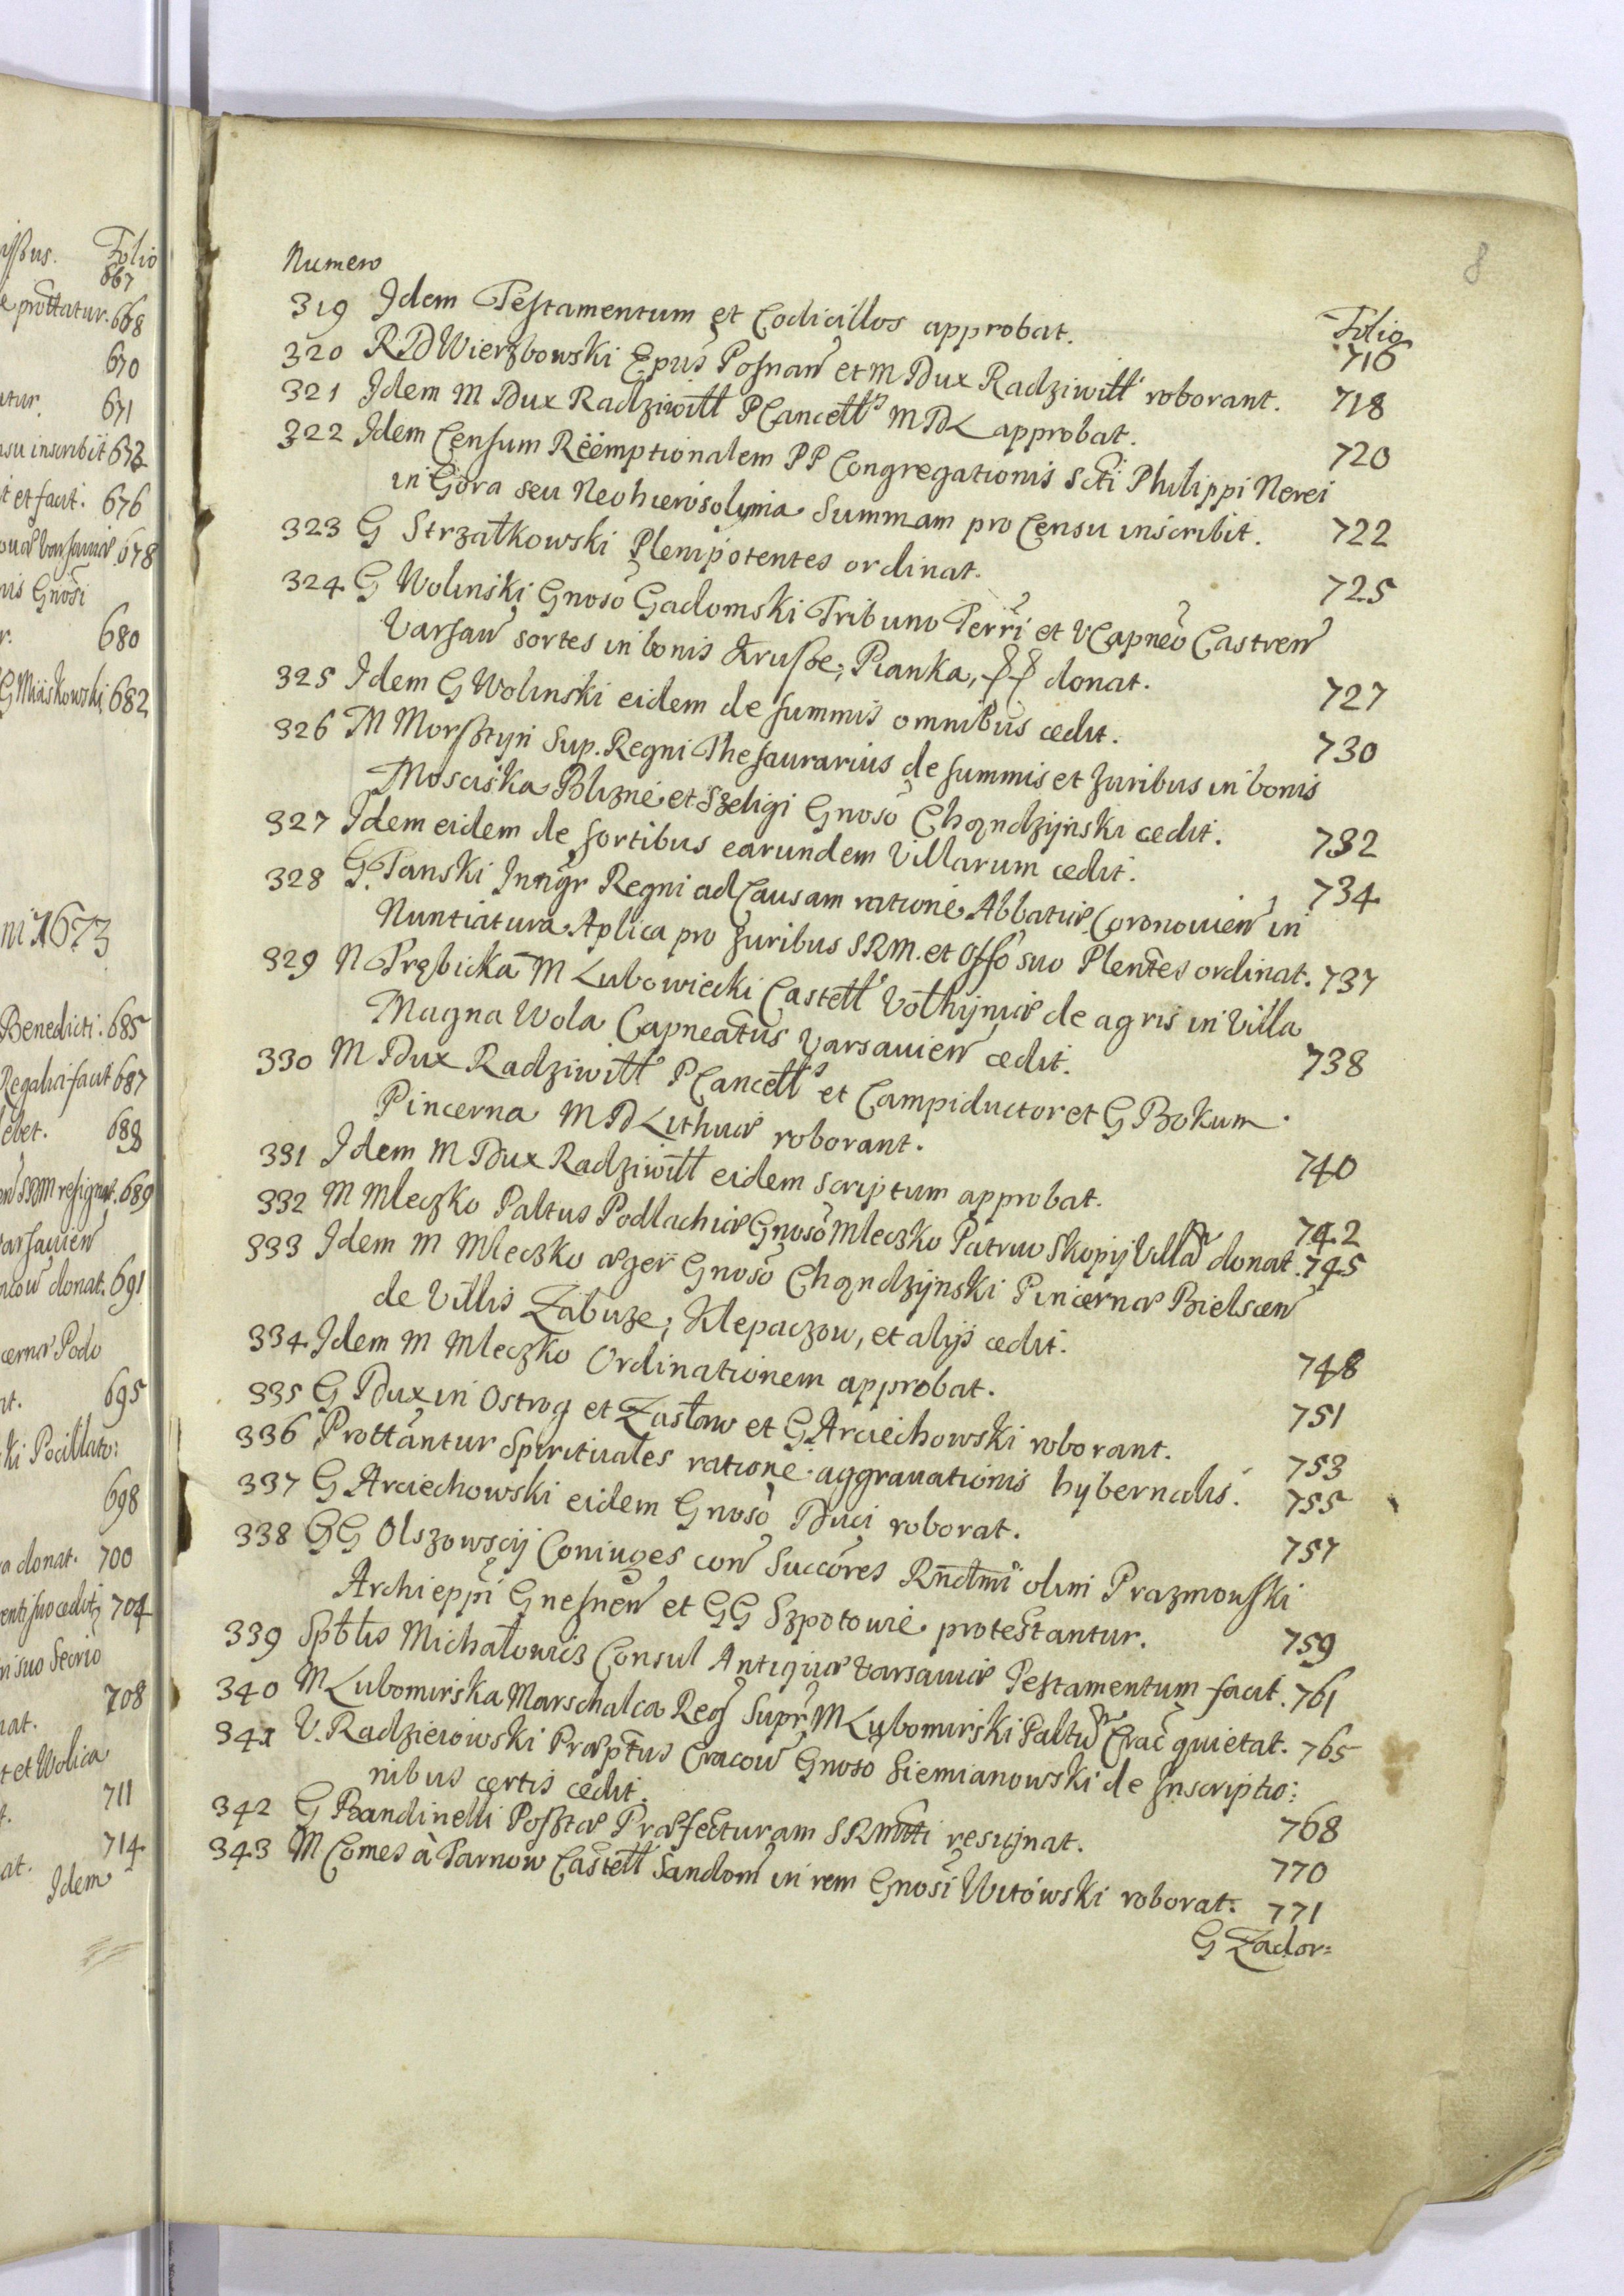 ißus. Folio
667
e prottatur. 668
670
atur. 671
nsu inscribit 673
it et facit. 676
678
nis Gnosi
r. 680
G Miaskowski 682
ni 1673
Benedicti. 685
Regalia facit 687
debet. 688
SRM resignat. 689
Varsavien
donat. 691
cernæ Podo
at. 695
ki Pocillato:
698
a donat. 700
suo cedit 704
in suo Secrio
nat. 708
t et Wolica
t. 711
at. 714
Idem
8
Numero Folio
319 Idem Testamentum et Codicillos approbat. 716
320 RD Wierzbowski Epus Posnan et M Dux Radziwiłł roborant. 718
321 Idem M Dux Radziwiłł PCancell MDL approbat. 720
322 Idem Censum Reemptionalem PP Congregationis Scti Philippi Nerei
in Gora seu Neohierosolyma Summam pro Censu inscribit. 722
323 G Strzałkowski Plenipotentes ordinat. 725
324 G Wolinski Gnoso Gadomski Tribuno Terri et VCapneo Castren
Varsav sortes in bonis Krusze, Pianka, donat. 727
325 Idem G Wolinski eidem de summis omnibus cedit. 730
326 M Morsztyn Sup. Regni Thesaurarius de summis et Juribus in bonis
Mosciska Blizne et Szeligi Gnoso Chądzyński cedit. 732
327 Idem eidem de sortibus earundem Villarum cedit. 734
328 G. Tanski Instigr Regni ad Causam ratione Abbatiæ Coronovien in
Nuntiatura Aplica pro Juribus SRM. et Offo suo Plentes ordinat. 737
329 N Trębicka M Lubowiecki Castell Vołhyniæ de agris in Villa
Magna Wola Capneatus Varsavien cedit. 738
330 M Dux Radziwiłł PCancell et Campiductor et G Bokum
Pincerna MD Lithuæ roborant. 740
331 Idem M Dux Radziwiłł eidem scriptum approbat. 742
332 M Mleczko Paltus Podlachiæ Gnoso Mleczko Patruo Skopij Villa donat. 745
333 Idem M Mleczko æger Gnoso Chądzyński Pincernæ Bielscen
de Villis Zabuze, Klepaczow, et alijs cedit. 748
334 Idem M Mleczko Ordinationem approbat. 751
335 G Dux in Ostrog et Zasław et G Arciechowski roborant. 753
336 Prottantur Spirituales ratione aggravationis hybernalis. 755
337 G Arciechowski eidem Gnoso Duci roborat. 757
338 GG Olszowscij Coniuges con Succores Rndmi olim Prazmowski
Archieppi Gnesnen et GG Szpotowie protestantur. 759
339 Spblis Michałowicz Consul Antiquæ Varsaviæ Testamentum facit. 761
340 M Lubomirska Marschalca Reg Supr M Lubomirski Paltu Crac quietat. 765
341 V. Radzieiowski Præptus Cracov Gnoso Siemianowski de Inscriptio:
nibus certis cedit. 768
342 G Bandinelli Posztæ Præfecturam SRMtti resignat. 770
343 M Comes à Tarnow Castell Sandom in rem Gnosi Witowski roborat. 771
G Zador: